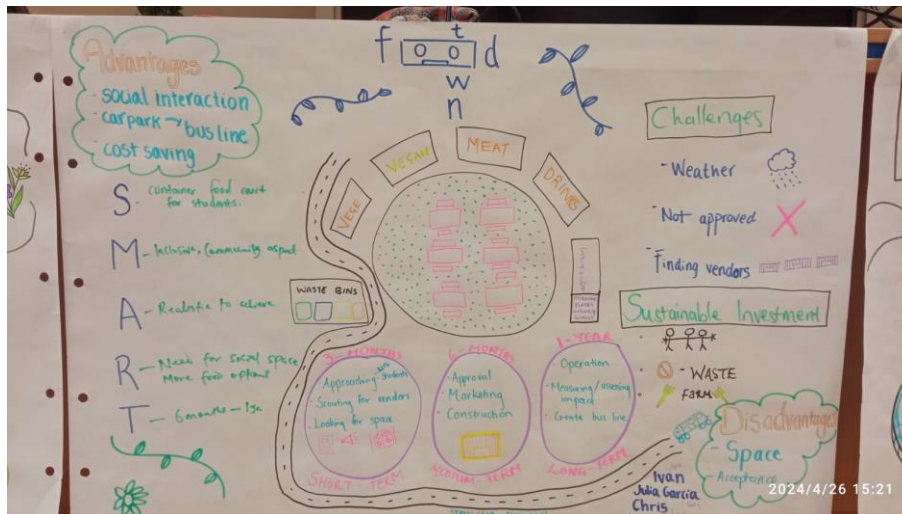 Advantages
- social interaction
- carpark → bus line
- cost saving
f t d
w
n
S - container food court
for students.
M - Inclusive, Community aspect
A - Realistic to achieve
R - Need for social space
More food options
T - 6 months - 1yr
VEGE
VEGAN
MEAT
DRINKS
WASTE BINS
3-MONTHS
- Approaching students
- Scouting for vendors
- Looking for space
SHORT-TERM
6-MONTHS
- Approval
- Marketing
- Construction
MEDIUM-TERM
1-YEAR
- Operation
- Measuring/assessing
impact
- Create bus line
LONG-TERM
Challenges
- Weather
- Not approved
- Finding vendors
Sustainable Investment
- WASTE
- FARM
Disadvantages
- Space
- Acceptance
Ivan
Julia Garcia
Chris
2024/4/26 15:21